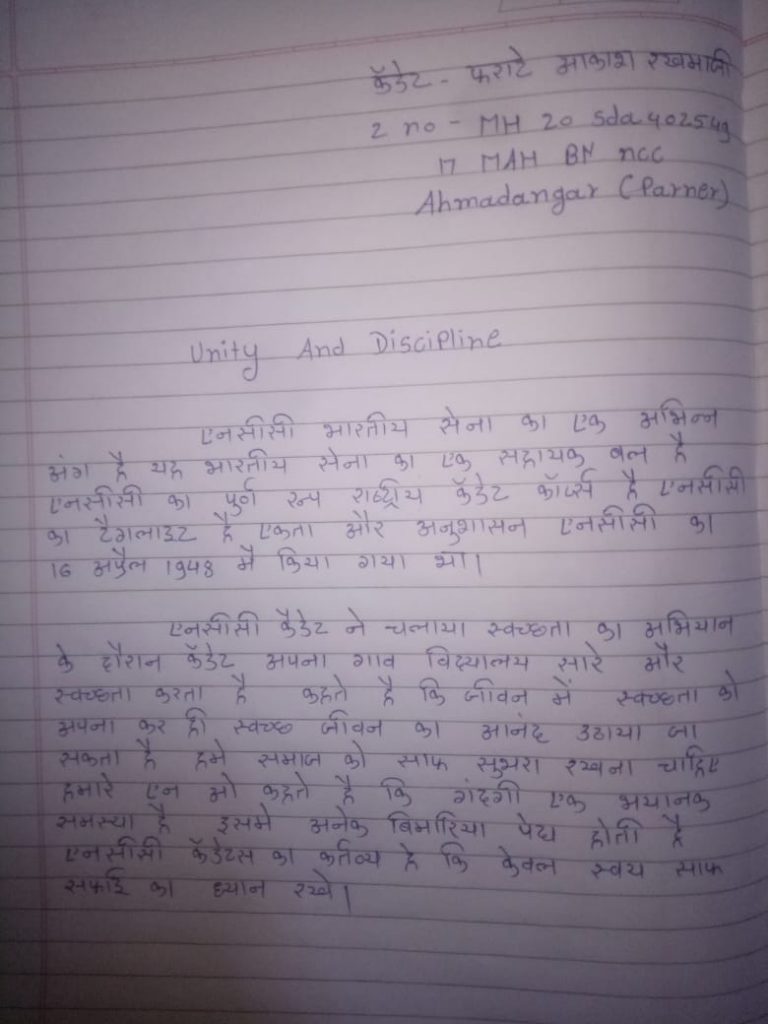 कॅडेट - फराटे आकाश रखमाजी
2 no - MH 20 Sda 402549
17 MAH BN ncc
Ahmadangar (Parner)
Unity And Discipline
एनसीसी भारतीय सेना का एक अभिन्न
अंग है यह भारतीय सेना का एक सहायक बल है
एनसीसी का पुर्ण रूप राष्ट्रीय कॅडेट कॉर्प्स है एनसीसी
का टैगलाइट है एकता और अनुशासन एनसीसी का
16 अप्रैल 1948 मै किया गया था।
एनसीसी कैडेट ने चलाया स्वच्छता का अभियान
के दौरान कॅडेट अपना गाव विद्यालय सारे और
स्वच्छता करता है कहते है कि जीवन में स्वच्छता को
अपना कर ही स्वच्छ जीवन का आनंद उठाया जा
सकता है हमे समाज को साफ सुथरा रखना चाहिए
हमारे एन ओ कहते है कि गंदगी एक भयानक
समस्या है इसमे अनेक बिमारिया पेद्य होती है
एनसीसी कॅडेटस का कर्तव्य हे कि केवल स्वय साफ
सफाई का ध्यान रखे।